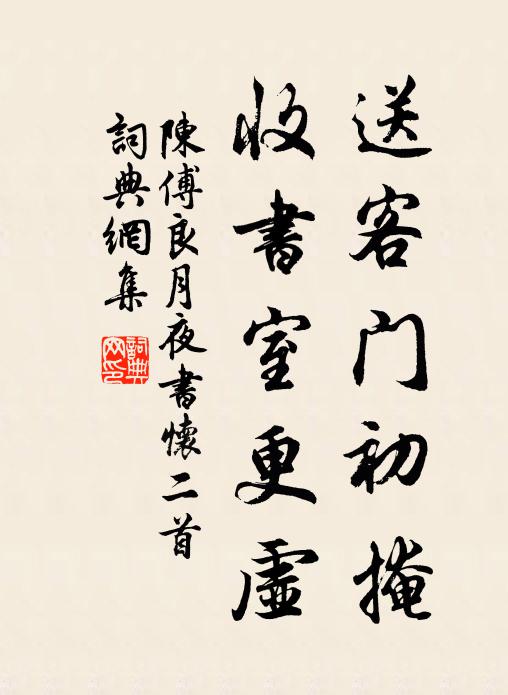 送客門初掩
收書室更虛
陳傅良月夜書懷二首
詞典網集
詞典網印